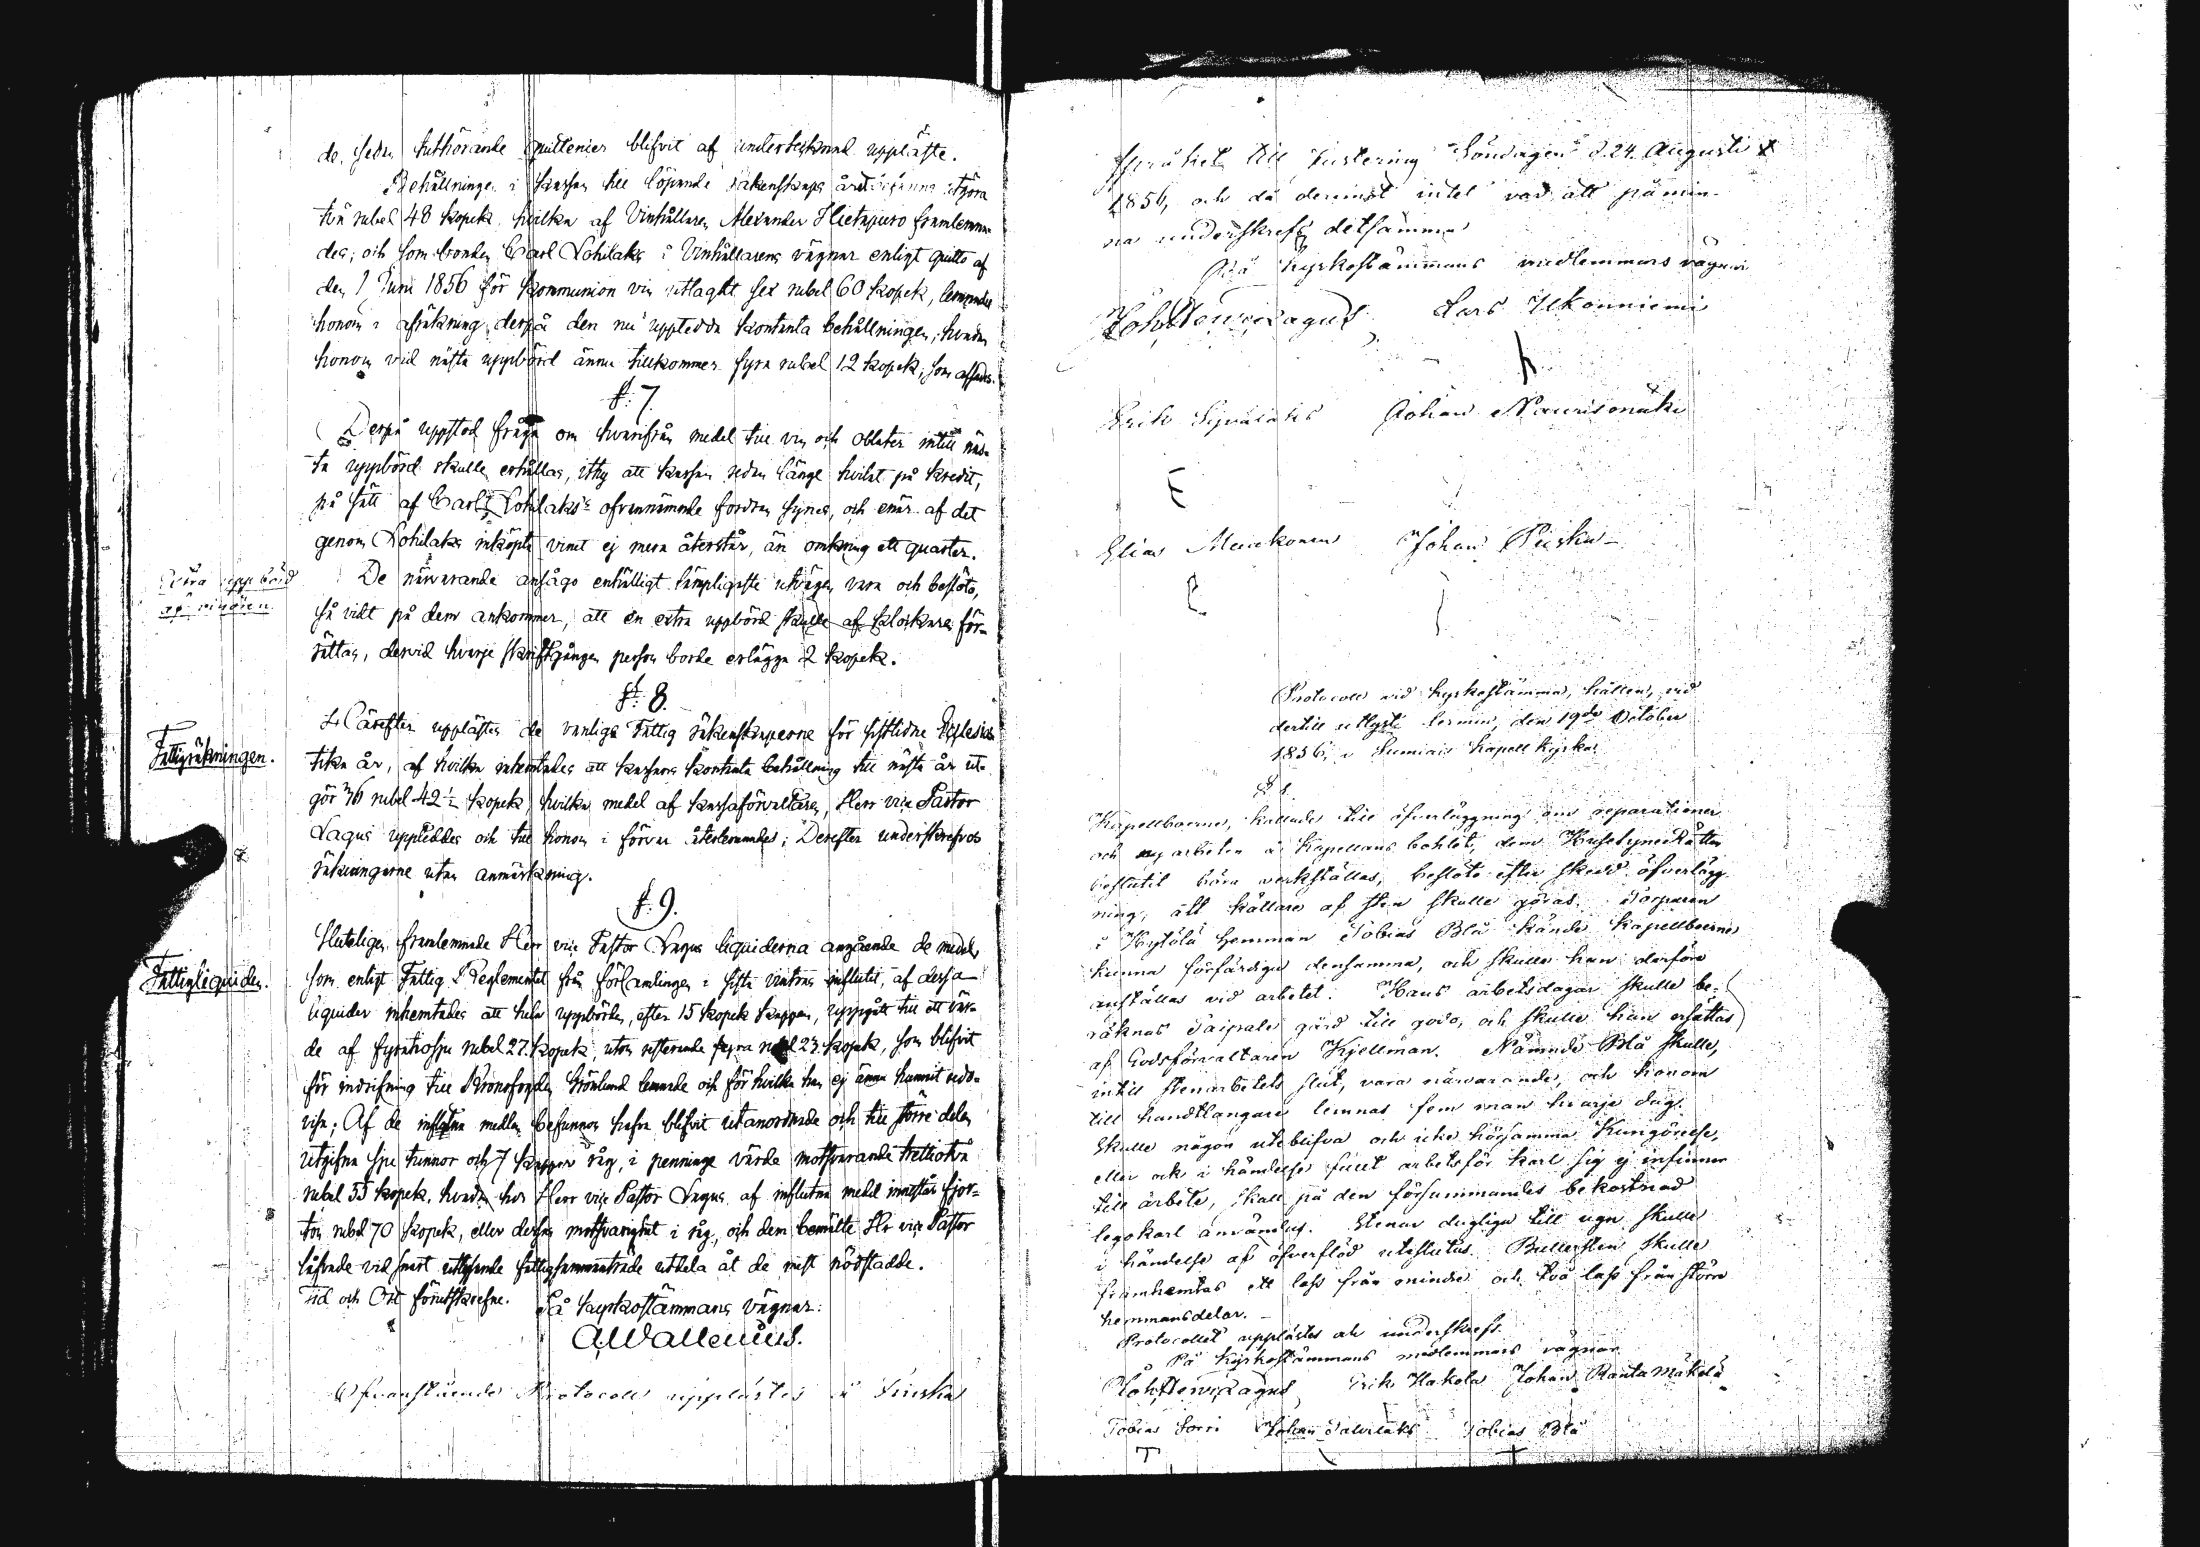 de, sedn tuthörande quittenser blifvit af undertecknad uppläste.
Behållningen i kassan till löpande räkenskaps året utgöra
två rubel 48 kopek, hvilka af Vinhållaren Alexander Hietapuro framlemna-
des; och som bonden Carl Lohilaks i Vinhållarens vägnar enligt quitto af
den 1 Juni 1856 för kommunion vin utlagt sex rubel 60 kopek, lemnades
honom i afräkning derpå den nu uppledda kontanta behållningen, hvadan
honom vid nästa uppbörd ännu tillkommer fyra rubel 12 kopek, som
§. 7.
Derpå uppstod fråga om hvarifrån medel till vin och oblater intill näs-
ta uppbörd skulle erhållas, ithy att kassan redan länge hvilat på kredit,
på sätt af Carl Lohilaks's ofvannämnde fordran synes, och enär af det
genom Lohilaks inköpta vinet ej mera återstår, än omkring ett quarter.
Extra uppbörd
af vinören.
De närvarande ansågo enhälligt lämpligaste utvägen vara och beslöto,
så vidt på dem ankommer, att en extra uppbörd skulle af klockaren för-
rättas, dervid hvarje skriftgången person borde erlägga 2 kopek.
§. 8.
Fattigräkningen.
Härefter upplästes de vanliga Fattig räkenskaperne för sistlidne Ecklesias-
tika år, af hvilka inhemtades att kassans kontanta behållning till nästa år ut-
gör 76 rubel 42 1/2 kopek, hvilka medel af kassaförvaltaren, Herr vice Pastor
Lagus uppteddes och till honom i förvar återlemnades; Derefter underskrefvos
räkningarne utan anmärkning.
§. 9.
Fattigliquiden.
Slutligen framlemnade Herr vice Pastor Lagus liquiderna angående de medel,
som enligt Fattig Reglementet från församlingen i sista vintras influtit, af dessa
liquider inhemtades att hela uppbörden, efter 15 kopek kappan, uppgått till ett vär-
de af fyratiosju rubel 27 kopek, utom resterande fyra rubel 23 kopek, som blifvit
för indrifning till Kronofogden Grönlund lemnade och för hvilka han ej ännu hunnit redo-
visa; Af de influtna medlen befunnos hafva blifvit utanordnade och till större delen
utgifna sju tunnor och 7 kappar råg, i penninge värde motsvarande trettiotvå
rubel 55 kopek, hvadan hos Herr vice Pastor Lagus af influtna medel innestår fjor-
ton rubel 70 kopek, eller dessas motsvarighet i råg, och dem bemälte Hr vice Pastor
låfvade vid snart utlysande fattigsammanträde utdela åt de mest nödstadde.
Tid och Ort förutskrefne. På kyrkostämmans vägnar:
A Wallenius.
Ofvanstående Protocoll upplästes å Finska
språket till Justering Söndagen d. 24 Augusti
1856, och då deremot intet var att påmin-
na underskrefs detsamma
På kyrkostämmans medlemmars vägnar
Joh. Henr. Lagus Lars Ukonniemi
Erik Johan Naurismäki
E
Elias Mankonen Johan Puska
E
Protocoll vid kyrkostämma, hållen, vid
dertill utlyst termin, den 19de October
1856, i Sumiais Kapell kyrka.
§ 1.
Kapellboerne, kallade till öfverläggning om reparationer
och ny arbeten å Kapellans bohlet, dem HusesyneRätten
beslutit böra verkställas, beslöto efter skedd öfverlägg-
ning, att källare af sten skulle göras. Torparen
i Hytölä hemman Tobias Blå kände Kapellboerne
kunna förfärdiga densamma, och skulle han derföre
anställas vid arbetet. Hans arbetsdagar skulle be-
räknas Paipale gård till godo, och skulle han ersättas
af Godsförvaltaren Kjellman. Nämnde Blå skulle,
intill stenarbetets slut, vara närvarande, och honom
till handtlangare lemnas fem man hvarje dag.
Skulle någon utebli­fva och icke hörsamma Kungörelse,
eller och i händelse fullt arbetsför karl sig ej infinner
till arbete, skall på den försummandes bekostnad
legokarl användas. Stenar dugliga till ugn skulle
i händelse af öfverflöd uteslutas. Bullersten skulle
framhemtas ett lass från mindre och två lass från större
hemmansdelar.
Protocollet upplästes och underskrefs.
På kyrkostämmans medlemmars vägnar
Joh. Henr. Lagus Erik Hakola Johan Rantamäkelä
Tobias Sorri Johan Salvilaks Tobias Blå
T